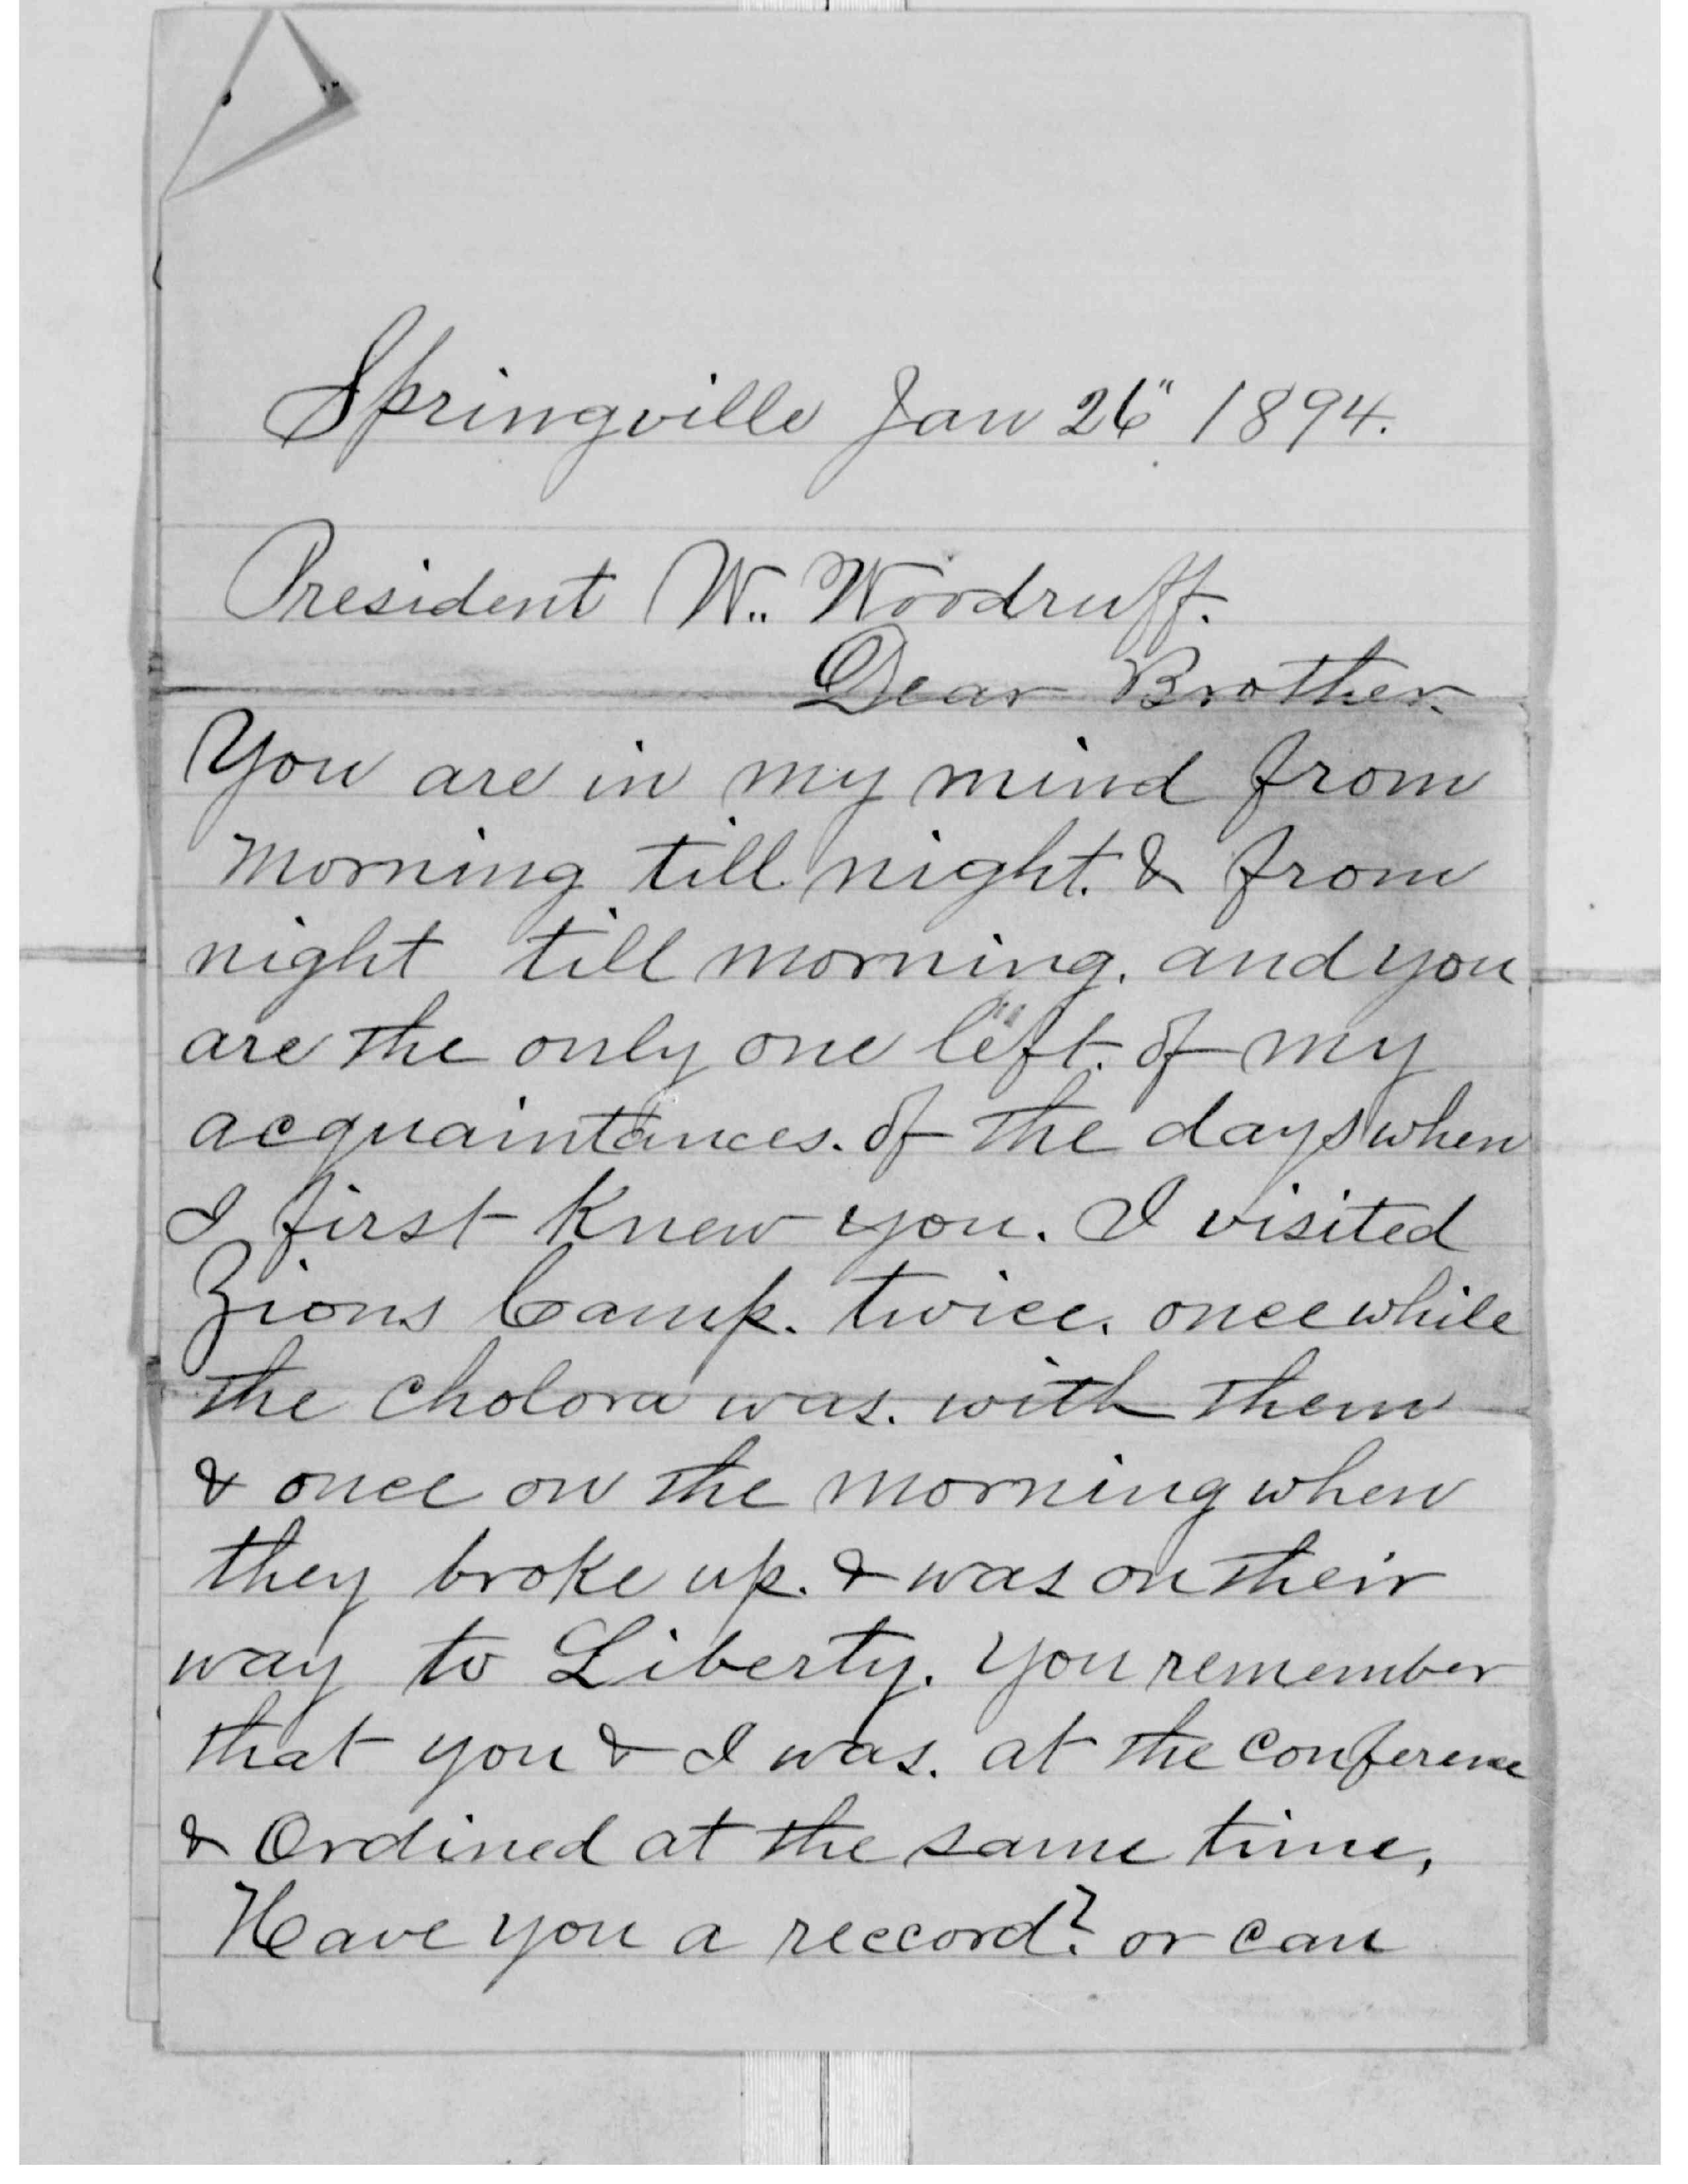 Springville Jan 26" 1894.
President W.. Woodruff.
Dear Brother.
You are in my mind from
morning till night. & from
night till morning. and you
are the only one left. of my
acquaintances. of the days when
I first knew you. I visited
Zions Camp. twice. once while
the cholora was. with them
& once on the morning when
they broke up. & was on their
way to Liberty. You remember
that you & I was. at the conference
& Ordined at the same time,
Have you a reccord? or can